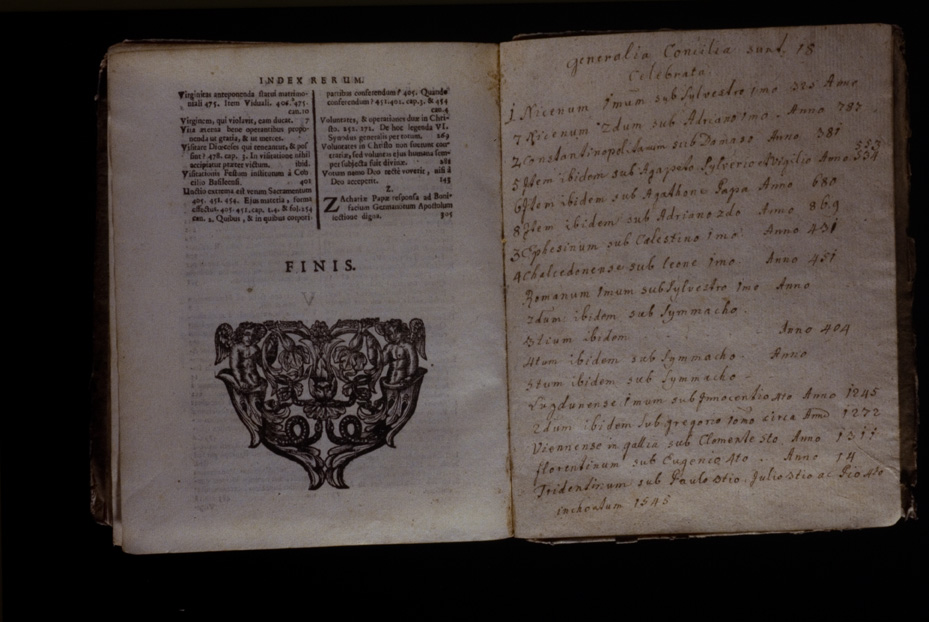 INDEX RERUM.
Virginitas anteponenda statui matrimo-
niali 475. Item Viduali. 406. 475.
can. 10
Virginem, qui violavit, eam ducat. 7
Vita æterna bene operantibus propo-
nenda ut gratia, & ut merces.
Visitare Diœceses qui teneantur, & pos
sint? 478. cap. 3. In visitatione nihil
accipiatur præter victum. ibid.
Visitationis Festum institutum à Con
cilio Basileensi. 402
Unctio extrema est verum Sacramentum
405. 451. 454. Ejus materia, forma
effectus. 405. 451. cap. 2. 4. & fol. 254
can. 2. Quibus, & in quibus corpori
partibus conferendum? 405. Quando
conferendum? 451. 402. cap. 3. & 454
can. 4
Voluntates, & operationes duæ in Chri-
sto. 251. 272. De hoc legenda VI.
Synodus generalis per totum. 269
Voluntates in Christo non fuerunt con-
trariæ, sed voluntas ejus humana sem-
per subjecta fuit divinæ. 281
Votum nemo Deo rectè voverit, nisi à
Deo acceperit. 143
Z.
Zachariæ Papæ responsa ad Boni-
facium Germanorum Apostolum
lectione digna. 305
FINIS.
Generalia Concilia sunt. 18
Celebrata.
1 Nicenum 1mum sub Sylvestro 1mo 325 Anno
7 Nicenum 2dum sub Adriano 1mo. Anno 787
2 Constantinopolitanum sub Damaso Anno 381
553
5 Item ibidem sub Agapeto Sylverio et Vigilio Anno 554
6 Item ibidem sub Agathone Papa Anno 680
8 Item ibidem sub Adriano 2do Anno 869
3 Ephesinum sub Cælestino 1mo. Anno 431
4 Chalcedonense sub Leone 1mo. Anno 451
Romanum 1mum sub Sylvestro 1mo Anno
2dum ibidem sub Symmacho.
3tium ibidem. Anno 404
4tum ibidem sub Symmacho. Anno
5tum ibidem sub Symmacho.
Lugdunense 1mum sub Innocentio 4to Anno 1245
2dum ibidem sub gregorio 10mo circa Anno 1272
Viennense in gallia sub Clemente 5to. Anno 1311
florentinum sub Eugenio 4to. Anno 14
Tridentinum sub Paulo 3tio. Julio 3tio ac Pio 4to
inchoatum 1545